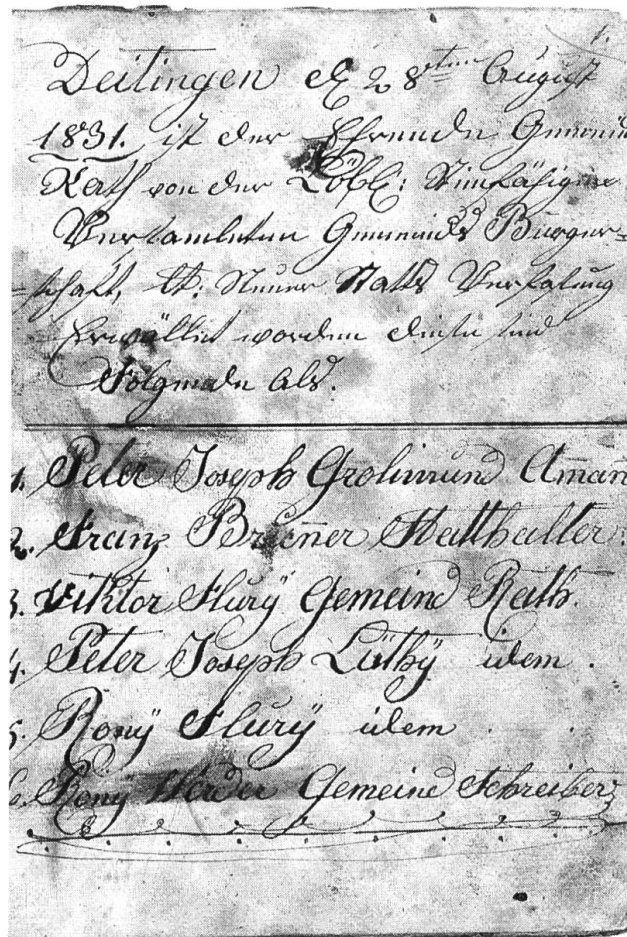 1.
Deitingen d 28ten August
1831. ist der Ehrende Gemeind
Rath von der Löbl: Stimfähigen
Versamleten Gemeinds Burger=
=schaft, lt: Neuer Staats Verfasung
Erwället worden diese sind
Folgende als.
1. Peter Joseph Grolimund Aman
2. Franz Brunner Statthalter.
3. Viktor Flury Gemeind Rath.
4. Peter Joseph Lüthÿ idem.
5. Flurÿ idem
6. Gemeind Schreiber